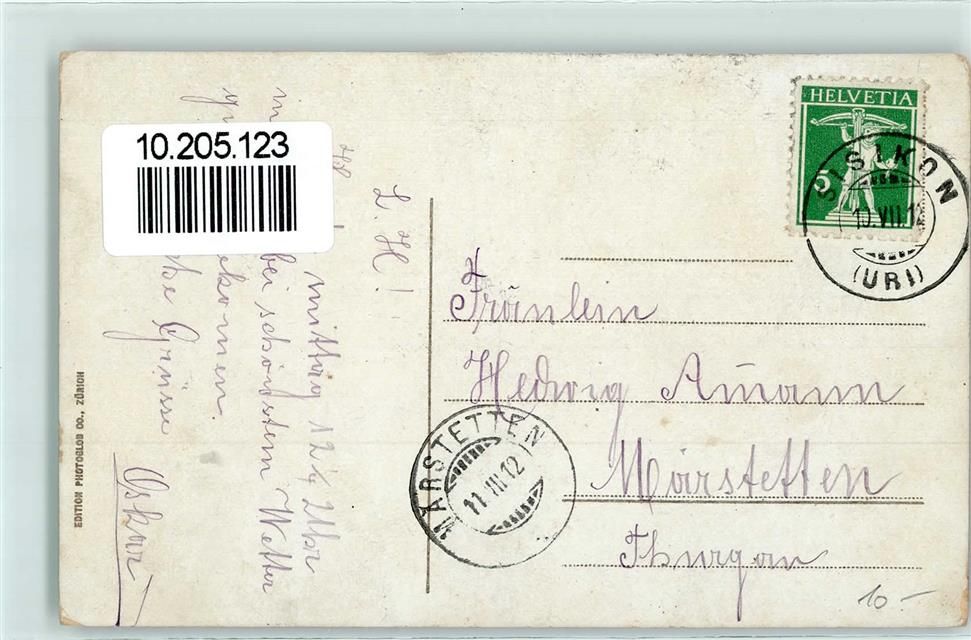 10.205.123
HELVETIA
5
SISIKON
10.VII.1
(URI)
L. H!
mittag 12¼ Uhr
bei schönstem Wetter
Grüsse
Oskar
EDITION PHOTOGLOB CO., ZÜRICH
Fräulein
Hedwig Amann
Märstetten
Thurgau
MÄRSTETTEN
11.VII.12
10.-